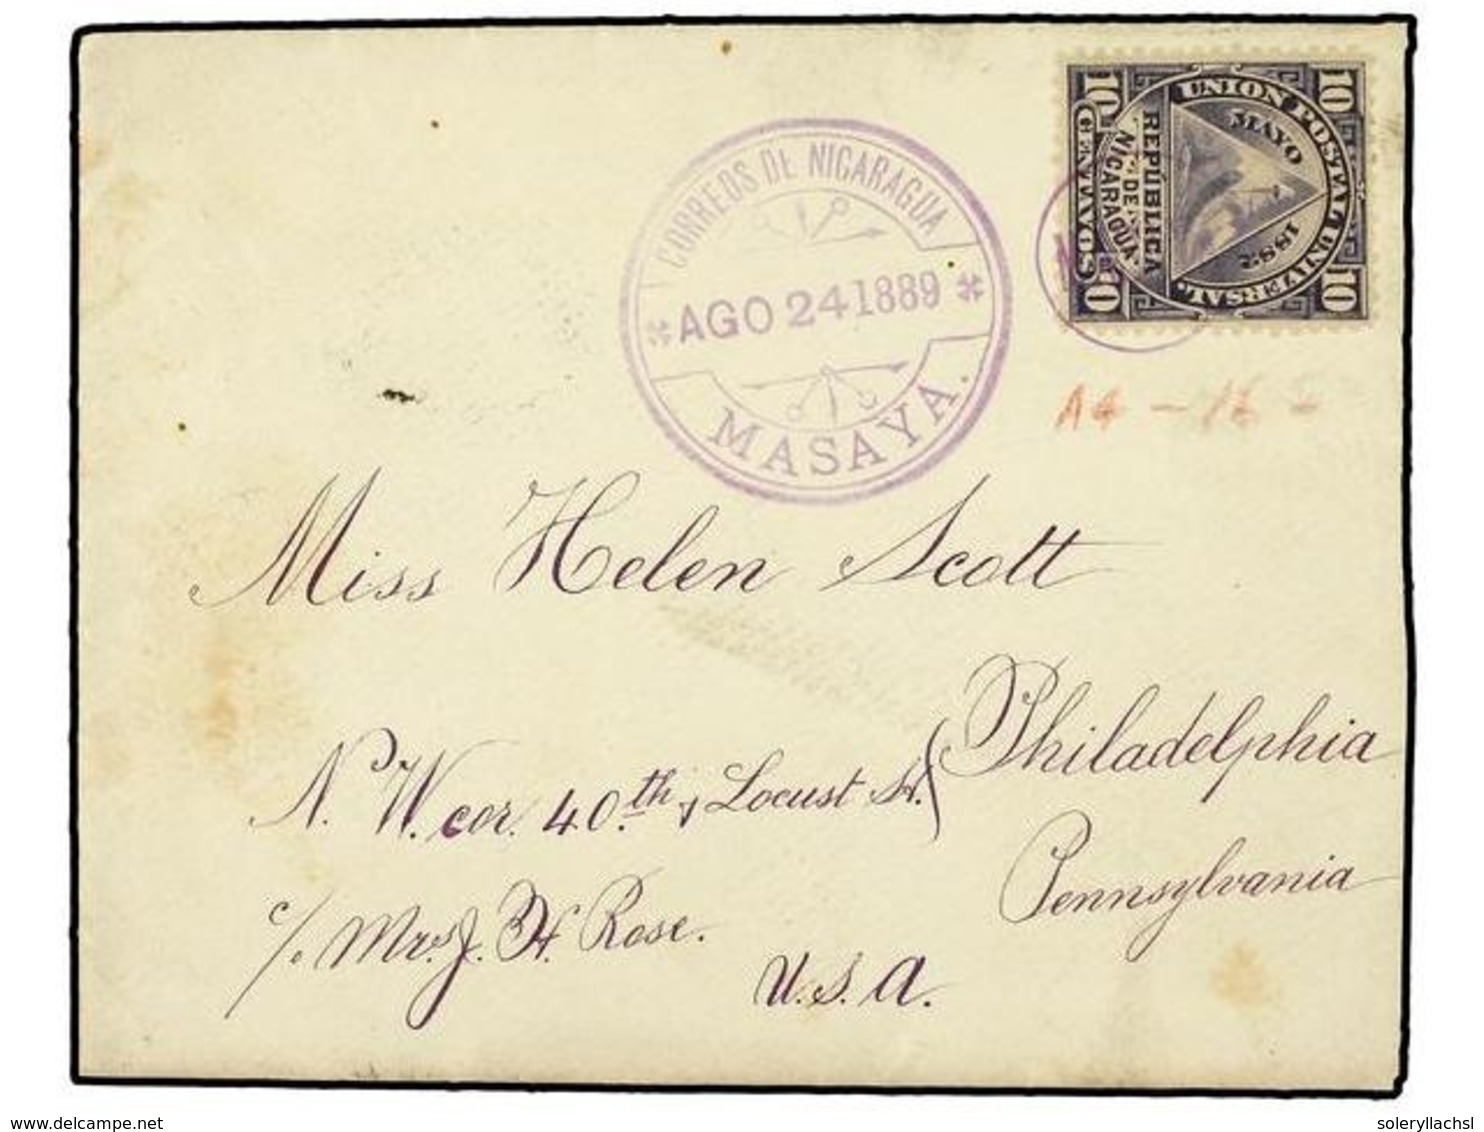 UNION POSTAL UNIVERSAL.
10 10 10 10
MAYO 1882
REPÚBLICA
DE
NICARAGUA.
CENTAVOS
CORREOS DE NICARAGUA
AGO 24 1889
MASAYA.
A4 - 16 -
Miss Helen Scott
N. W. cor. 40.th & Locust St. Philadelphia
Pennsylvania
c/o Mrs. J. H. Rose.
U.S.A.
www.delcampe.net
soleryllachsl